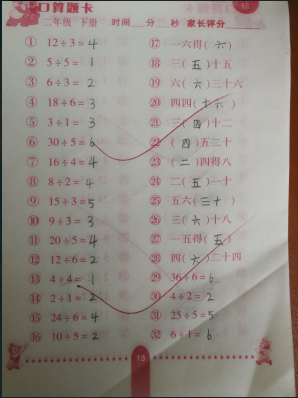 口算题卡
二年级 下册 时间 分 秒 家长评分
① 12÷3=4
② 5÷5=1
③ 6÷3=2
④ 18÷6=3
⑤ 3÷1=3
⑥ 30÷5=6
⑦ 16÷4=4
⑧ 8÷2=4
⑨ 15÷3=5
⑩ 9÷3=3
⑪ 20÷5=4
⑫ 12÷6=2
⑬ 4÷4=1
⑭ 2÷1=2
⑮ 24÷6=4
⑯ 10÷5=2
⑰ 一六得(六)
⑱ 三(五)十五
⑲ 六(六)三十六
⑳ 四四(十六)
㉑ 三(四)十二
㉒ (四)五二十
㉓ (二)四得八
㉔ 二(五)一十
㉕ 五六(三十)
㉖ 三(六)十八
㉗ 一五得(五)
㉘ 四(六)二十四
㉙ 36÷6=6
㉚ 4÷2=2
㉛ 25÷5=5
㉜ 6÷1=6
13